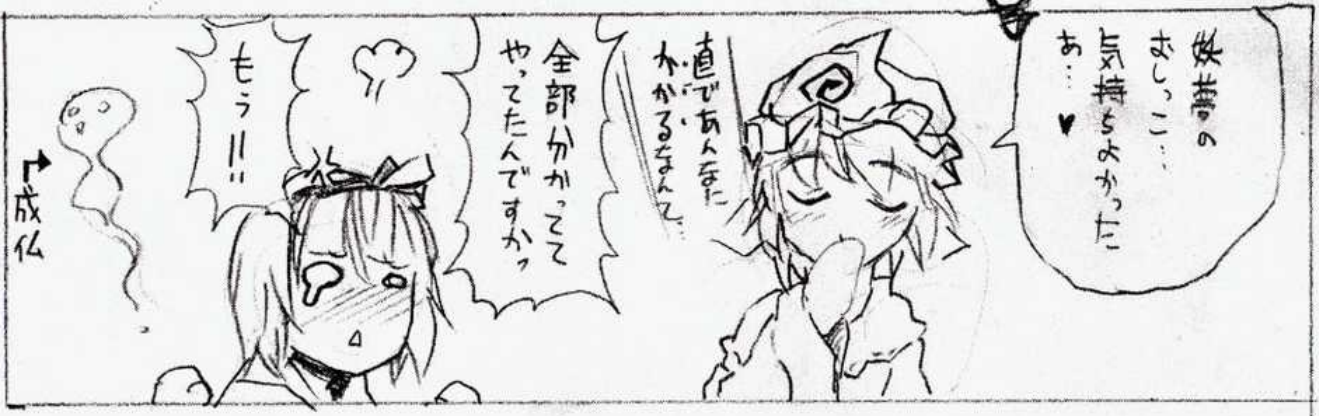 妖夢の
おしっこ…
気持ちよかった
あ…♥
直であんなに
かかるなんて…
全部分かってて
やってたんですかっ
もう!!
成仏